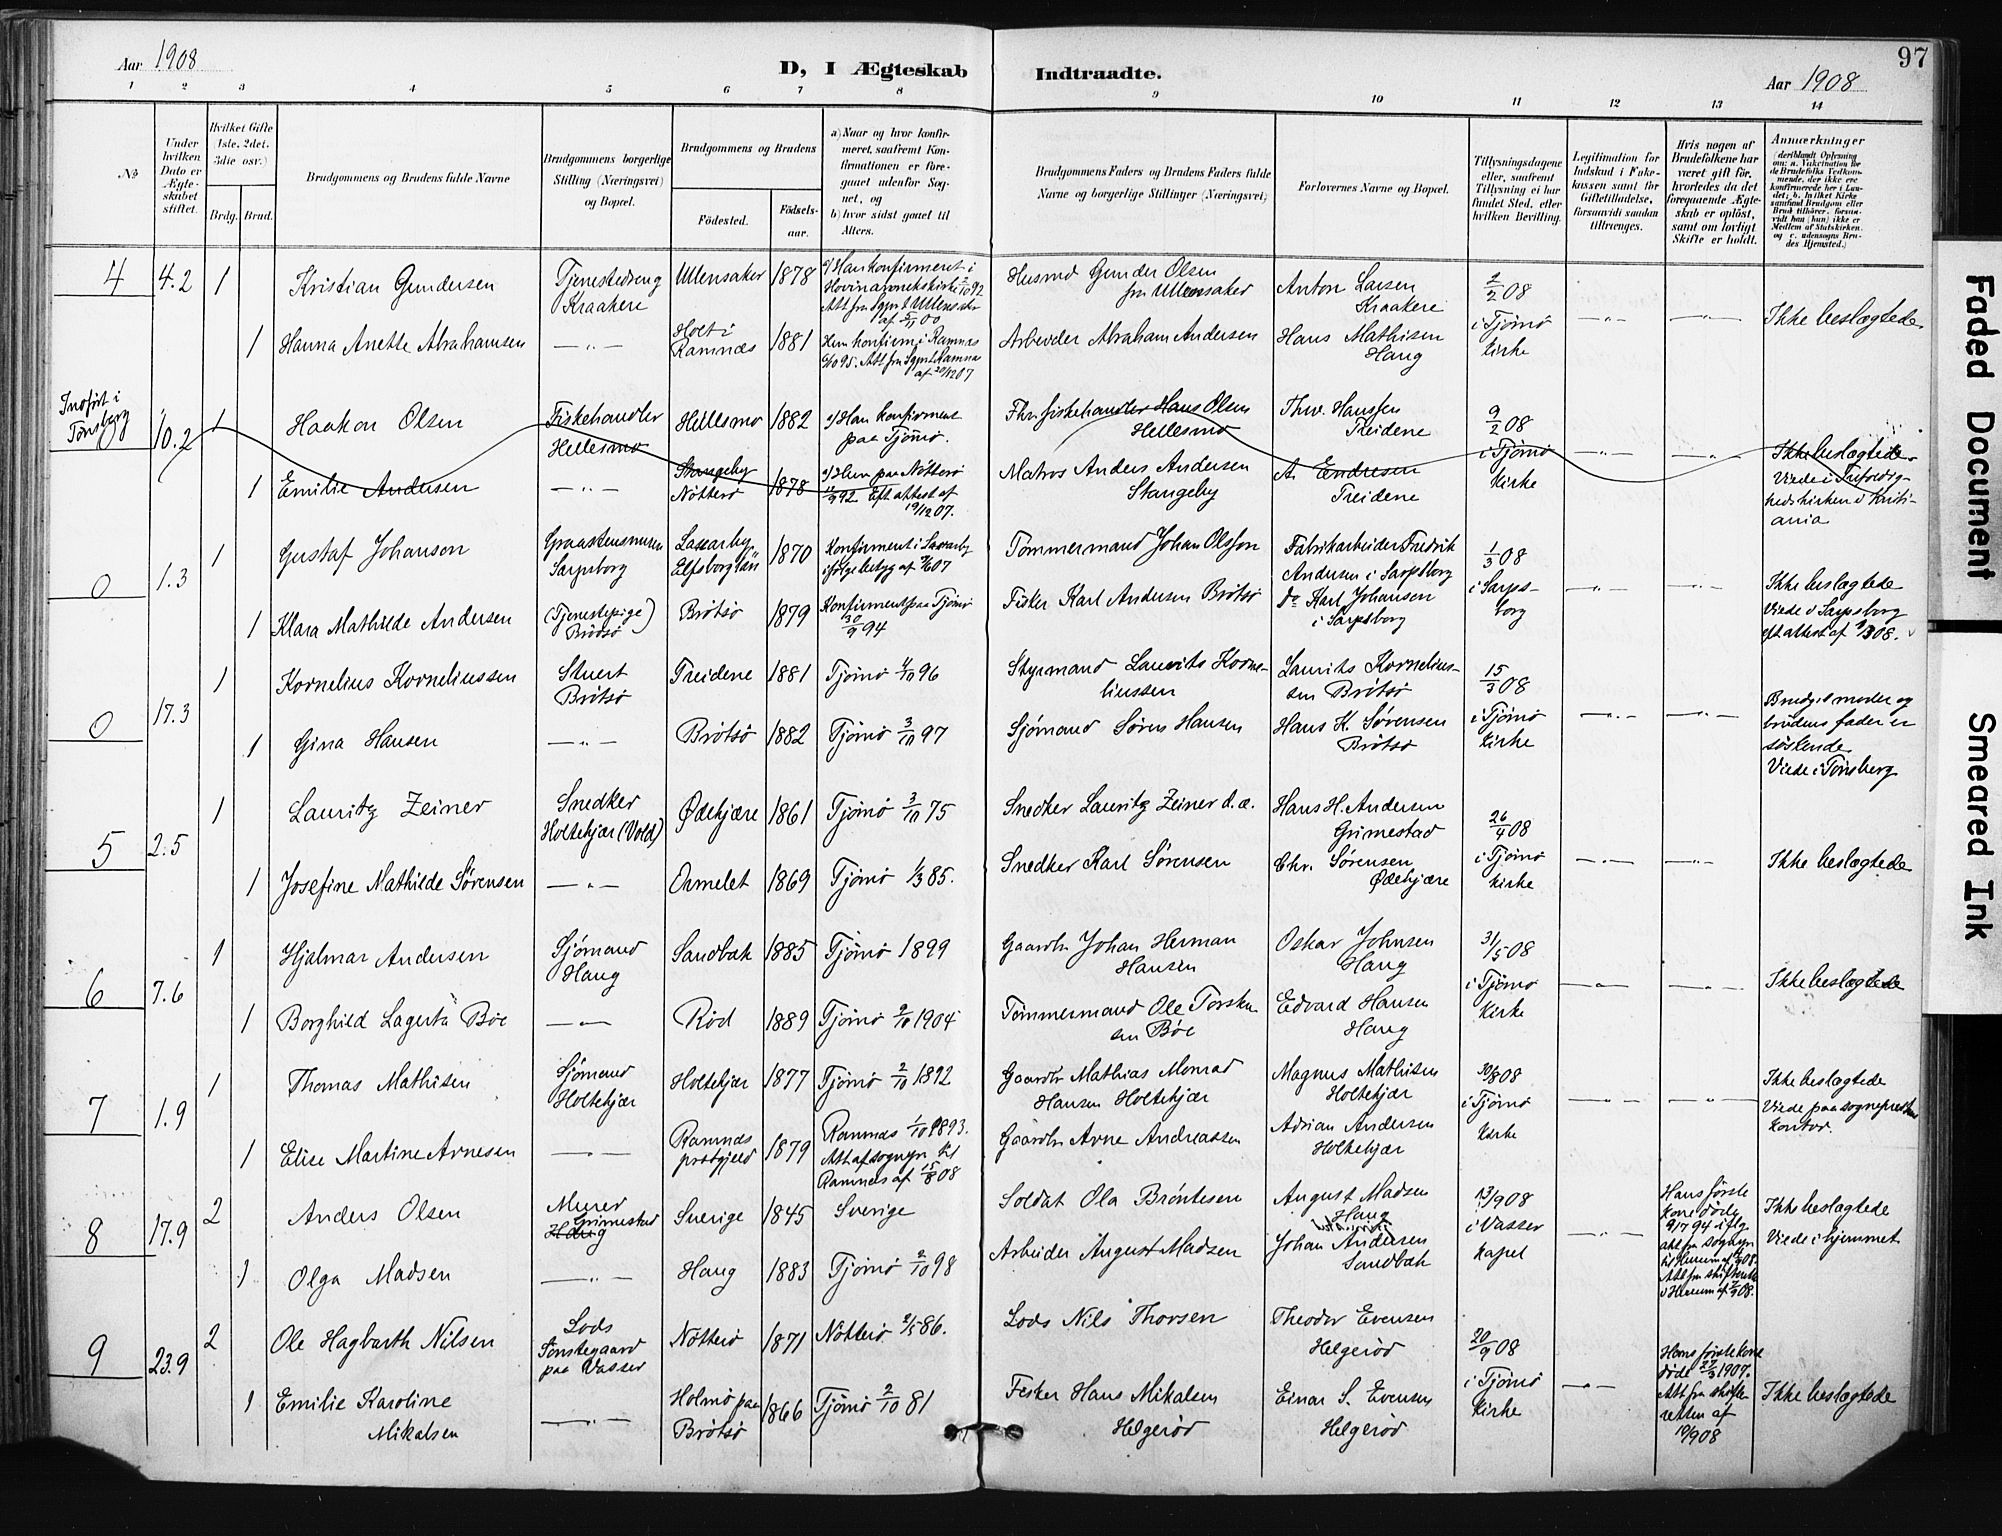 Aar 1908
D, I Ægteskab Indtraadte.
97
Aar 1908
1 2 3 4 5 6 7 8 9 10 11 12 13 14
No
Under hvilken Dato er Ægteskabet stiftet.
Hvilket Gifte (1ste, 2det, 3die osv.)
Brdg. Brud.
Brudgommens og Brudens fulde Navne
Brudgommens borgerlige Stilling (Næringsvei) og Bopæl.
Brudgommens og Brudens
Fødested.
Fødselsaar.
a) Naar og hvor konfirmeret, saafremt Konfirmationen er foregaaet udenfor Sognet, og
b) hvor sidst gaaet til Alters.
Brudgommens Faders og Brudens Faders fulde Navne og borgerlige Stillinger (Næringsvei)
Forlovernes Navne og Bopæl.
Tillysningsdagene eller, saafremt Tillysning ei har fundet Sted, efter hvilken Bevilling.
Legitimation for Indskud i Enkekassen samt for Giftetilladelse, forsaavidt saadan tiltrænges.
Hvis nogen af Brudefolkene har været gift før, hvorledes da det foregaaende Ægteskab er opløst, samt om lovligt Skifte er holdt.
Anmærkninger
(deriblandt Oplysning om: a. Vakcination for de Brudefolks Vedkommende, der ikke ere konfirmerede her i Landet; b. hvilket Kirkesamfund Brudgom eller Brud tilhører, forsaavidt han (hun) ikke er Medlem af Statskirken, og c. udensogns Brudes Hjemsted.)
4 4.2 1 Kristian Gundersen Tjenestedreng Kraakere Ullensaker 1878 a/ Han konfirmeret i Hovin annekskirke 2/10 92 Att fra Sgpr. t Ullensaker af 5/1 00 Husmd Gunder Olsen fra Ullensaker Anton Larsen Kraakere 2/2 08
1 Hanna Anette Abrahamsen —„— Holt i Ramnæs 1881 Hun konfirm. i Ramnæs 6/10 95. Att fra Sgpr t Ramnæs af 20/12 07 Arbeider Abraham Andersen Hans Mathisen Haug i Tjømø kirke —„— —„— Ikke beslægtede
Indført i Tønsberg 10.2 1 Haakon Olsen Fiskehandler Hellesmo Hellesmo 1882 a/ Han konfirment paa Tjømø. Fhv. fiskehandler Hans Olsen Hellesmo Thv. Hansen Treidene 9/2 08
1 Emilie Andersen —„— Stangeby Nötterö 1878 a/ Hun paa Nötterö 11/9 92 Eft attest af 19/12 07. Matros Anders Andersen Stangeby A. Endresen Treidene i Tjømø kirke —„— —„— Ikke beslægtede. Viede i Trefoldighedskirken i Kristiania
0 1.3 1 Gustaf Johanson Graastensmurer Sarpsborg Laxarby Elfsborg län 1870 Konfirment i Laxarby ifølge betyg af 07 Tømmermand Johan Olsson Fabrikarbeider Fredrik Andersen i Sarpsborg 1/3 08
1 Klara Mathilde Andersen (Tjenestepige) Brötsö Brötsö 1879 Konfirment paa Tjømø 30/9 94 Fisker Karl Andersen Brötsö Do Karl Johansen i Sarpsborg i Sarpsborg —„— —„— Ikke beslægtede Viede i Sarpsborg eft attest af 9/3 08.
0 17.3 1 Kornelius Korneliussen Stuert Brötsö Treidene 1881 Tjømø 4/10 96 Styrmand Laurits Korneliussen Laurits Korneliussen Brötsö 15/3 08
1 Gina Hansen —„— Brötsö 1882 Tjømø 3/10 97 Sjømand Søren Hansen Hans K. Sørensen Brötsö i Tjømø kirke —„— —„— Brudg.s moder og brudens fader er søskende. Viede i Tønsberg
5 2.5 1 Lauritz Zeiner Snedker Holtekjær (Vold) Ødekjære 1861 Tjømø 3/10 75 Snedker Lauritz Zeiner d.æ. Hans H. Andersen Grimestad 26/4 08
1 Josefine Mathilde Sørensen —„— Ormelet 1869 Tjømø 1/3 85. Snedker Karl Sørensen Chr. Sørensen Ødekjære i Tjømø kirke —„— —„— Ikke beslægtede
6 7.6 1 Hjalmar Andersen Sjømand Haug Sandbæk 1885 Tjømø 1899 Gaardbr Johan Herman Hansen Oskar Johnsen Haug 31/5 08
1 Borghild Lagerta Bøe —„— Rød 1889 Tjømø 2/10 1904 Tømmermand Ole Torskensen Bøe Edvard Hansen Haug i Tjømø kirke —„— —„— Ikke beslægtede
7 1.9 1 Thomas Mathisen Sjømand Holtekjær Holtekjær 1877 Tjømø 2/10 1892 Gaardbr Mathias Monrad Hansen Holtekjær Magnus Mathisen Holtekjær 30/8 08
1 Elise Martine Arnesen —„— Ramnæs prestgjeld 1879 Ramnæs 1/10 1893. Att af sogнpr til Ramnæs af 15/8 08 Gaardbr Arne Andreassen Adrian Andersen Holtekjær i Tjømø kirke —„— —„— Ikke beslægtede Viede paa sogneprestens kontor.
8 17.9 2 Anders Olsen Murer Grimestad Haug Sverige 1845 Sverige Soldat Ola Bröntesen August Madsen Haug 13/9 08 Hans første kone døde 9/7 94 iflg. att fra sognpr.
1 Olga Madsen —„— Haug 1883 Tjømø 2/10 98 Arbeider August Madsen Johan Andersen Sandbæk i Vasser kapel —„— Att fra skifteretten Ikke beslægtede Viede i hjemmet
9 23.9 2 Ole Hagbarth Nilsen Lods Tønstegaard paa Vasser Nötterö 1871 Nötterö 2/5 86. Lods Nils Thorsen Theodor Evensen Helgerød 20/9 08
1 Emilie Karoline Mikalsen —„— Holmö paa Brötsö 1866 Tjømø 2/10 81 Fisker Hans Mikalsen Helgerød Einar S. Evensen Helgerød i Tjømø kirke —„— Hans første kone døde 27/3 1907. Att fra skifteretten af 19/9 08 Ikke beslægtede
Faded Document
Smeared Ink